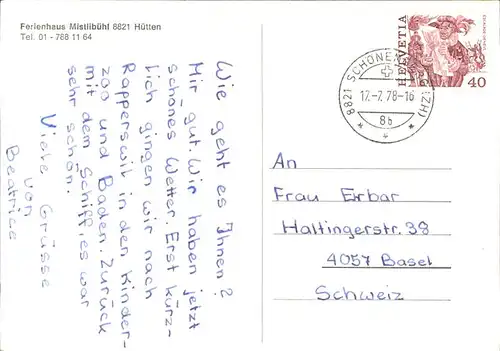 Ferienhaus Mistlibühl 8821 Hütten
Tel. 01 - 788 11 64
Wie geht es Ihnen?
Mir gut. Wir haben jetzt
schönes Wetter. Erst kürz-
lich gingen wir nach
Rapperswil in den Kinder-
zoo und Baden. Zurück
mit dem Schiff, es war
sehr schön.
Viele Grüsse
von
Beatrice
HELVETIA
40
8821 SCHÖNENBERG (ZH)
17.-7.78-16
8b
An
Frau Erbar
Haltingerstr. 38
4057 Basel
Schweiz